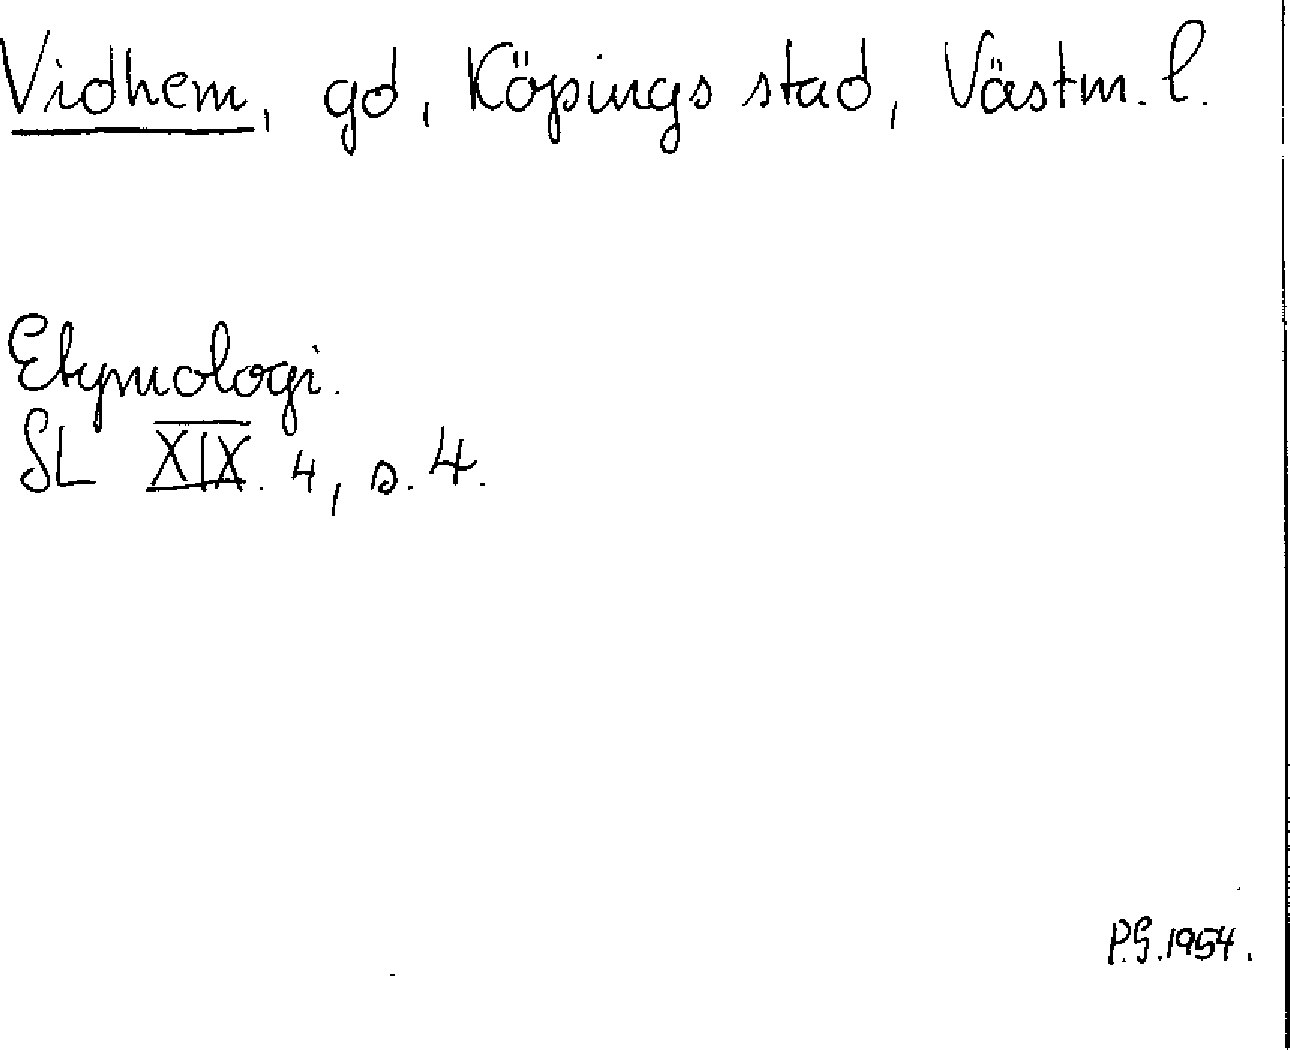 Vidhem, gd, Köpings stad, Västm. l.
Etymologi.
SL XIX. 4, s. 4.
P.G. 1954.